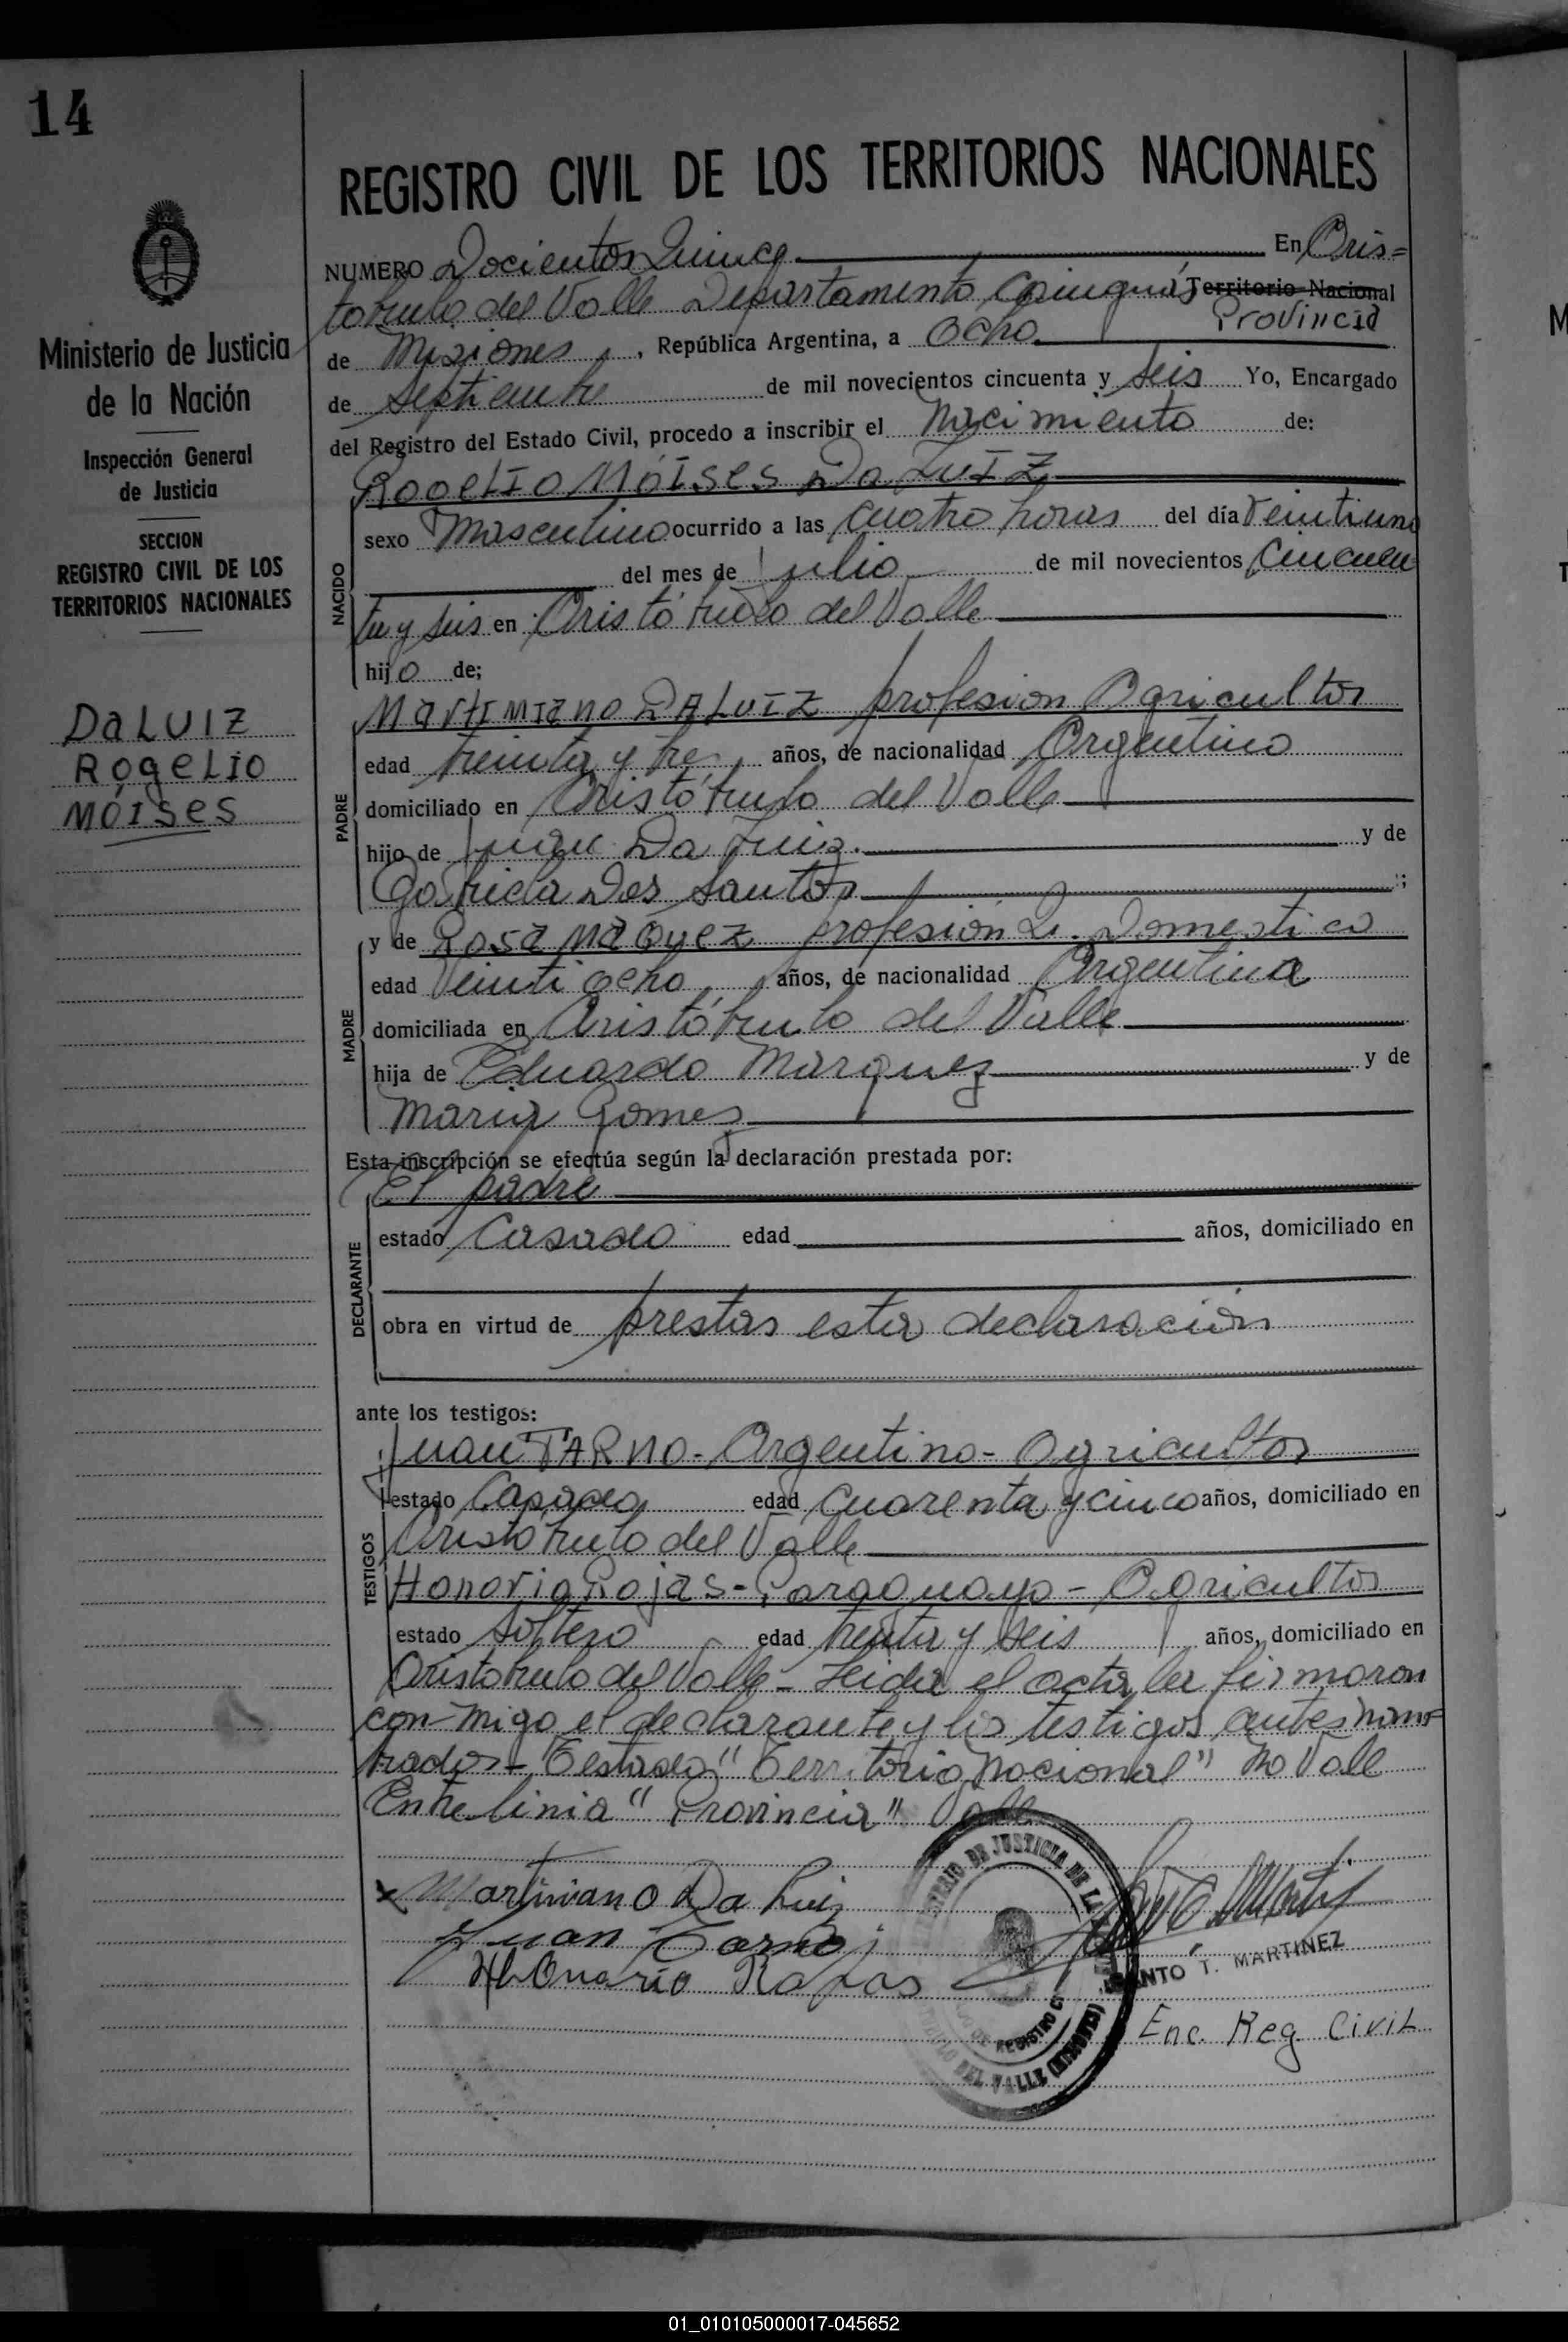 14
REGISTRO CIVIL DE LOS TERRITORIOS NACIONALES
Ministerio de Justicia
de la Nación
Inspección General
de Justicia
SECCION
REGISTRO CIVIL DE LOS
TERRITORIOS NACIONALES
DaLUIZ
ROgeLIO
MOISes
NUMERO Docientos Quince En Aris=
tobulo del Valle Departamento Cainguás Territorio Nacional
Provincia
de Misiones, República Argentina, a Ocho
de septiembre de mil novecientos cincuenta y seis Yo, Encargado
del Registro del Estado Civil, procedo a inscribir el Nacimiento de:
ROgeLIO MOISes Da LUIZ
NACIDO
sexo Masculino ocurrido a las cuatro horas del día veintiuno
del mes de julio de mil novecientos cincuen
ta y seis en Aristóbulo del Valle
hijo de;
PADRE
MartiMIano DALUIZ profesion Agricultor
edad treinta y tres, años, de nacionalidad Argentino
domiciliado en Aristóbulo del Valle
hijo de Juan Da Luiz. y de
Gabriela Dos Santos ;
MADRE
y de Rosa profesión Q. Domestico
edad Veinti ocho, años, de nacionalidad Argentina
domiciliada en Aristóbulo del Valle
hija de Eduardo Marquez y de
Maria Gomez
Esta inscripción se efectúa según la declaración prestada por:
El padre
DECLARANTE
estado Casado edad años, domiciliado en
obra en virtud de prestar esta declaración
ante los testigos:
TESTIGOS
Juan TARNO - Argentino - Agricultor
estado Casado edad cuarenta y cinco años, domiciliado en
Aristóbulo del Valle
Honorio Rojas - Paraguayo - Agricultor
estado soltero edad treinta y seis años, domiciliado en
Aristobulo del Valle - Leida el acta la firmaron
con-migo el declarante y los testigos antes nom-
brados - Testado "Territorio Nacional" No Vale
Entre linia "Provincia" Vale
x Martimiano Da Luiz
Juan Tarno
Honorio Rojas
MINISTERIO DE JUSTICIA DE LA
REGISTRO CI
DEL VALLE (MISIONES)
SANTO T. MARTINEZ
Enc. Reg. CiviL
01_010105000017-045652